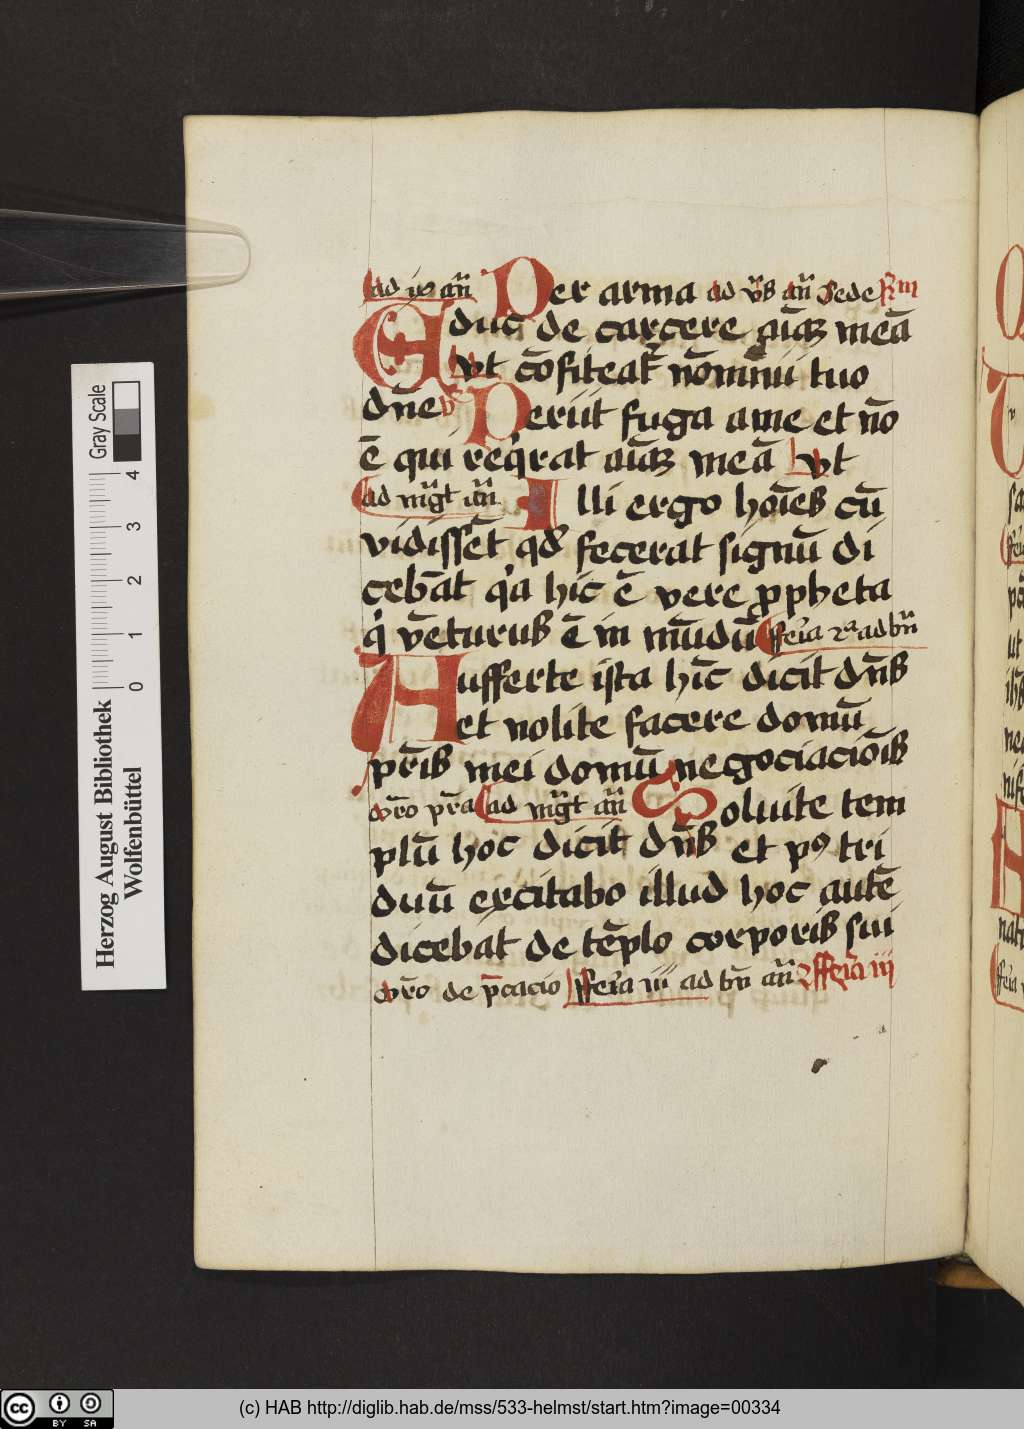 ad īō añ Per arma ad v̄s añ Sede R̄m
Educ de carcere aīaz meā
Vt cōfiteat' nōmīni tuo
dn̄e v̄s Periit fuga a me et nō
ē qui req'rat aīaz meā Vt
ad m̄gt añ Illi ergo hoīes cū
vidissēt qd' fecerat signū di
cebāt q'a hic ē vere ppheta
q' vēturus ē in mūdū ffer'ia 2ª ad bn̄
Aufferte ista hīc dicit dn̄s
et nolite facere domū
pr̄is mei domū negociaciōis
Vēro pr̄a ad m̄gt añ Soluite tem
plū hoc dicit dn̄s et p9 tri
duū excitabo illud hoc autē
dicebat de tēplo corporis sui
Vēro de p̄cacio ffer'ia iii ad bn̄ añ ffer'ia iii
Gray Scale
4
3
2
1
0
Herzog August Bibliothek
Wolfenbüttel
cc BY SA
(c) HAB http://diglib.hab.de/mss/533-helmst/start.htm?image=00334